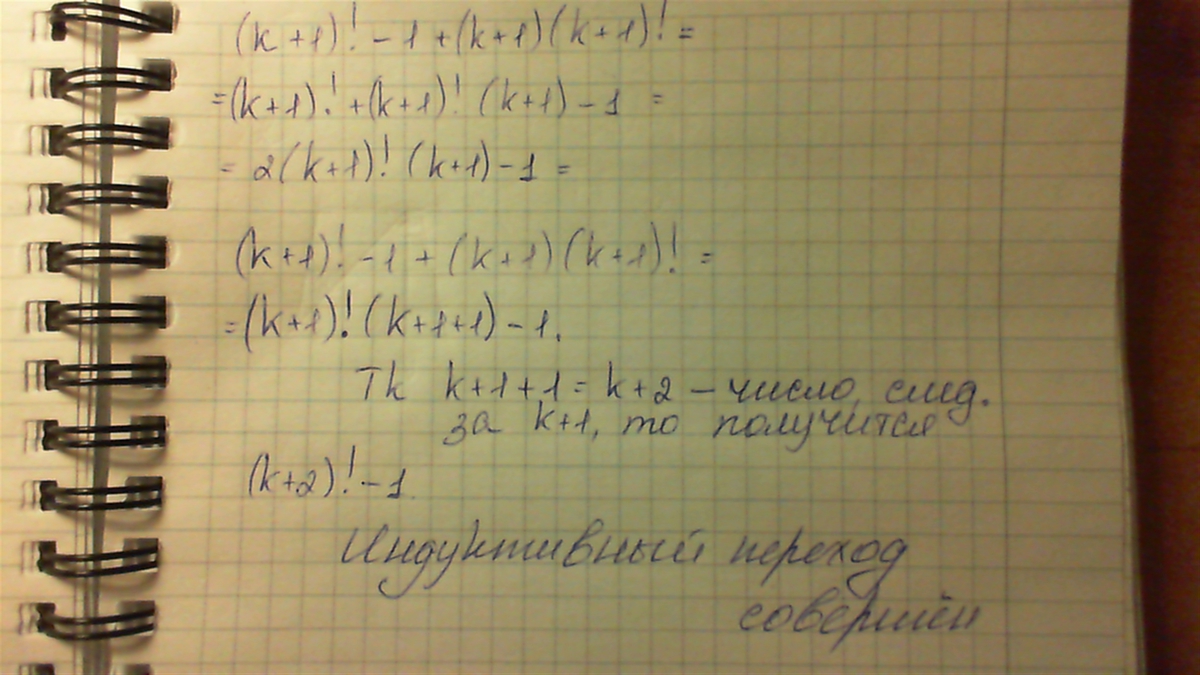 (k+1)! - 1 + (k+1)(k+1)! =
= (k+1)! + (k+1)! (k+1) - 1 =
= 2(k+1)! (k+1) - 1 =
(k+1)! - 1 + (k+1)(k+1)! =
= (k+1)! (k+1+1) - 1.
Тк k+1+1 = k+2 – число, след.
за k+1, то получится
(k+2)! - 1
Индуктивный переход
совершён